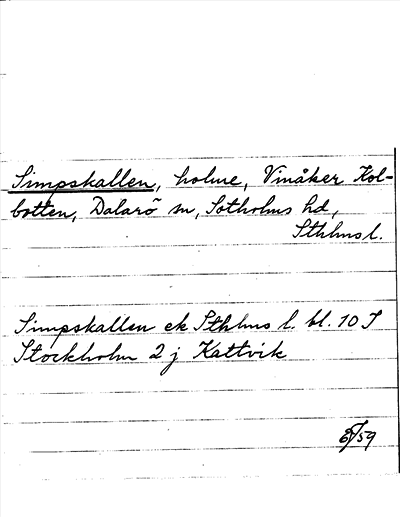 Simpskallen, holme, Vinåker Kol-
botten, Dalarö sn, Sotholms hd,
Sthlms l.
Simpskallen ek Sthlms l. bl. 10 J
Stockholm 2 j Kattvik
/59